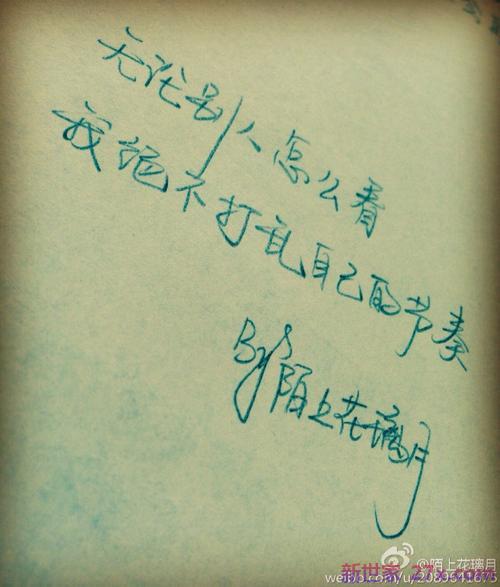 无论别人怎么看
我绝不打乱自己的节奏
By 陌上花璃月
@陌上花璃月
新世家 27x.com